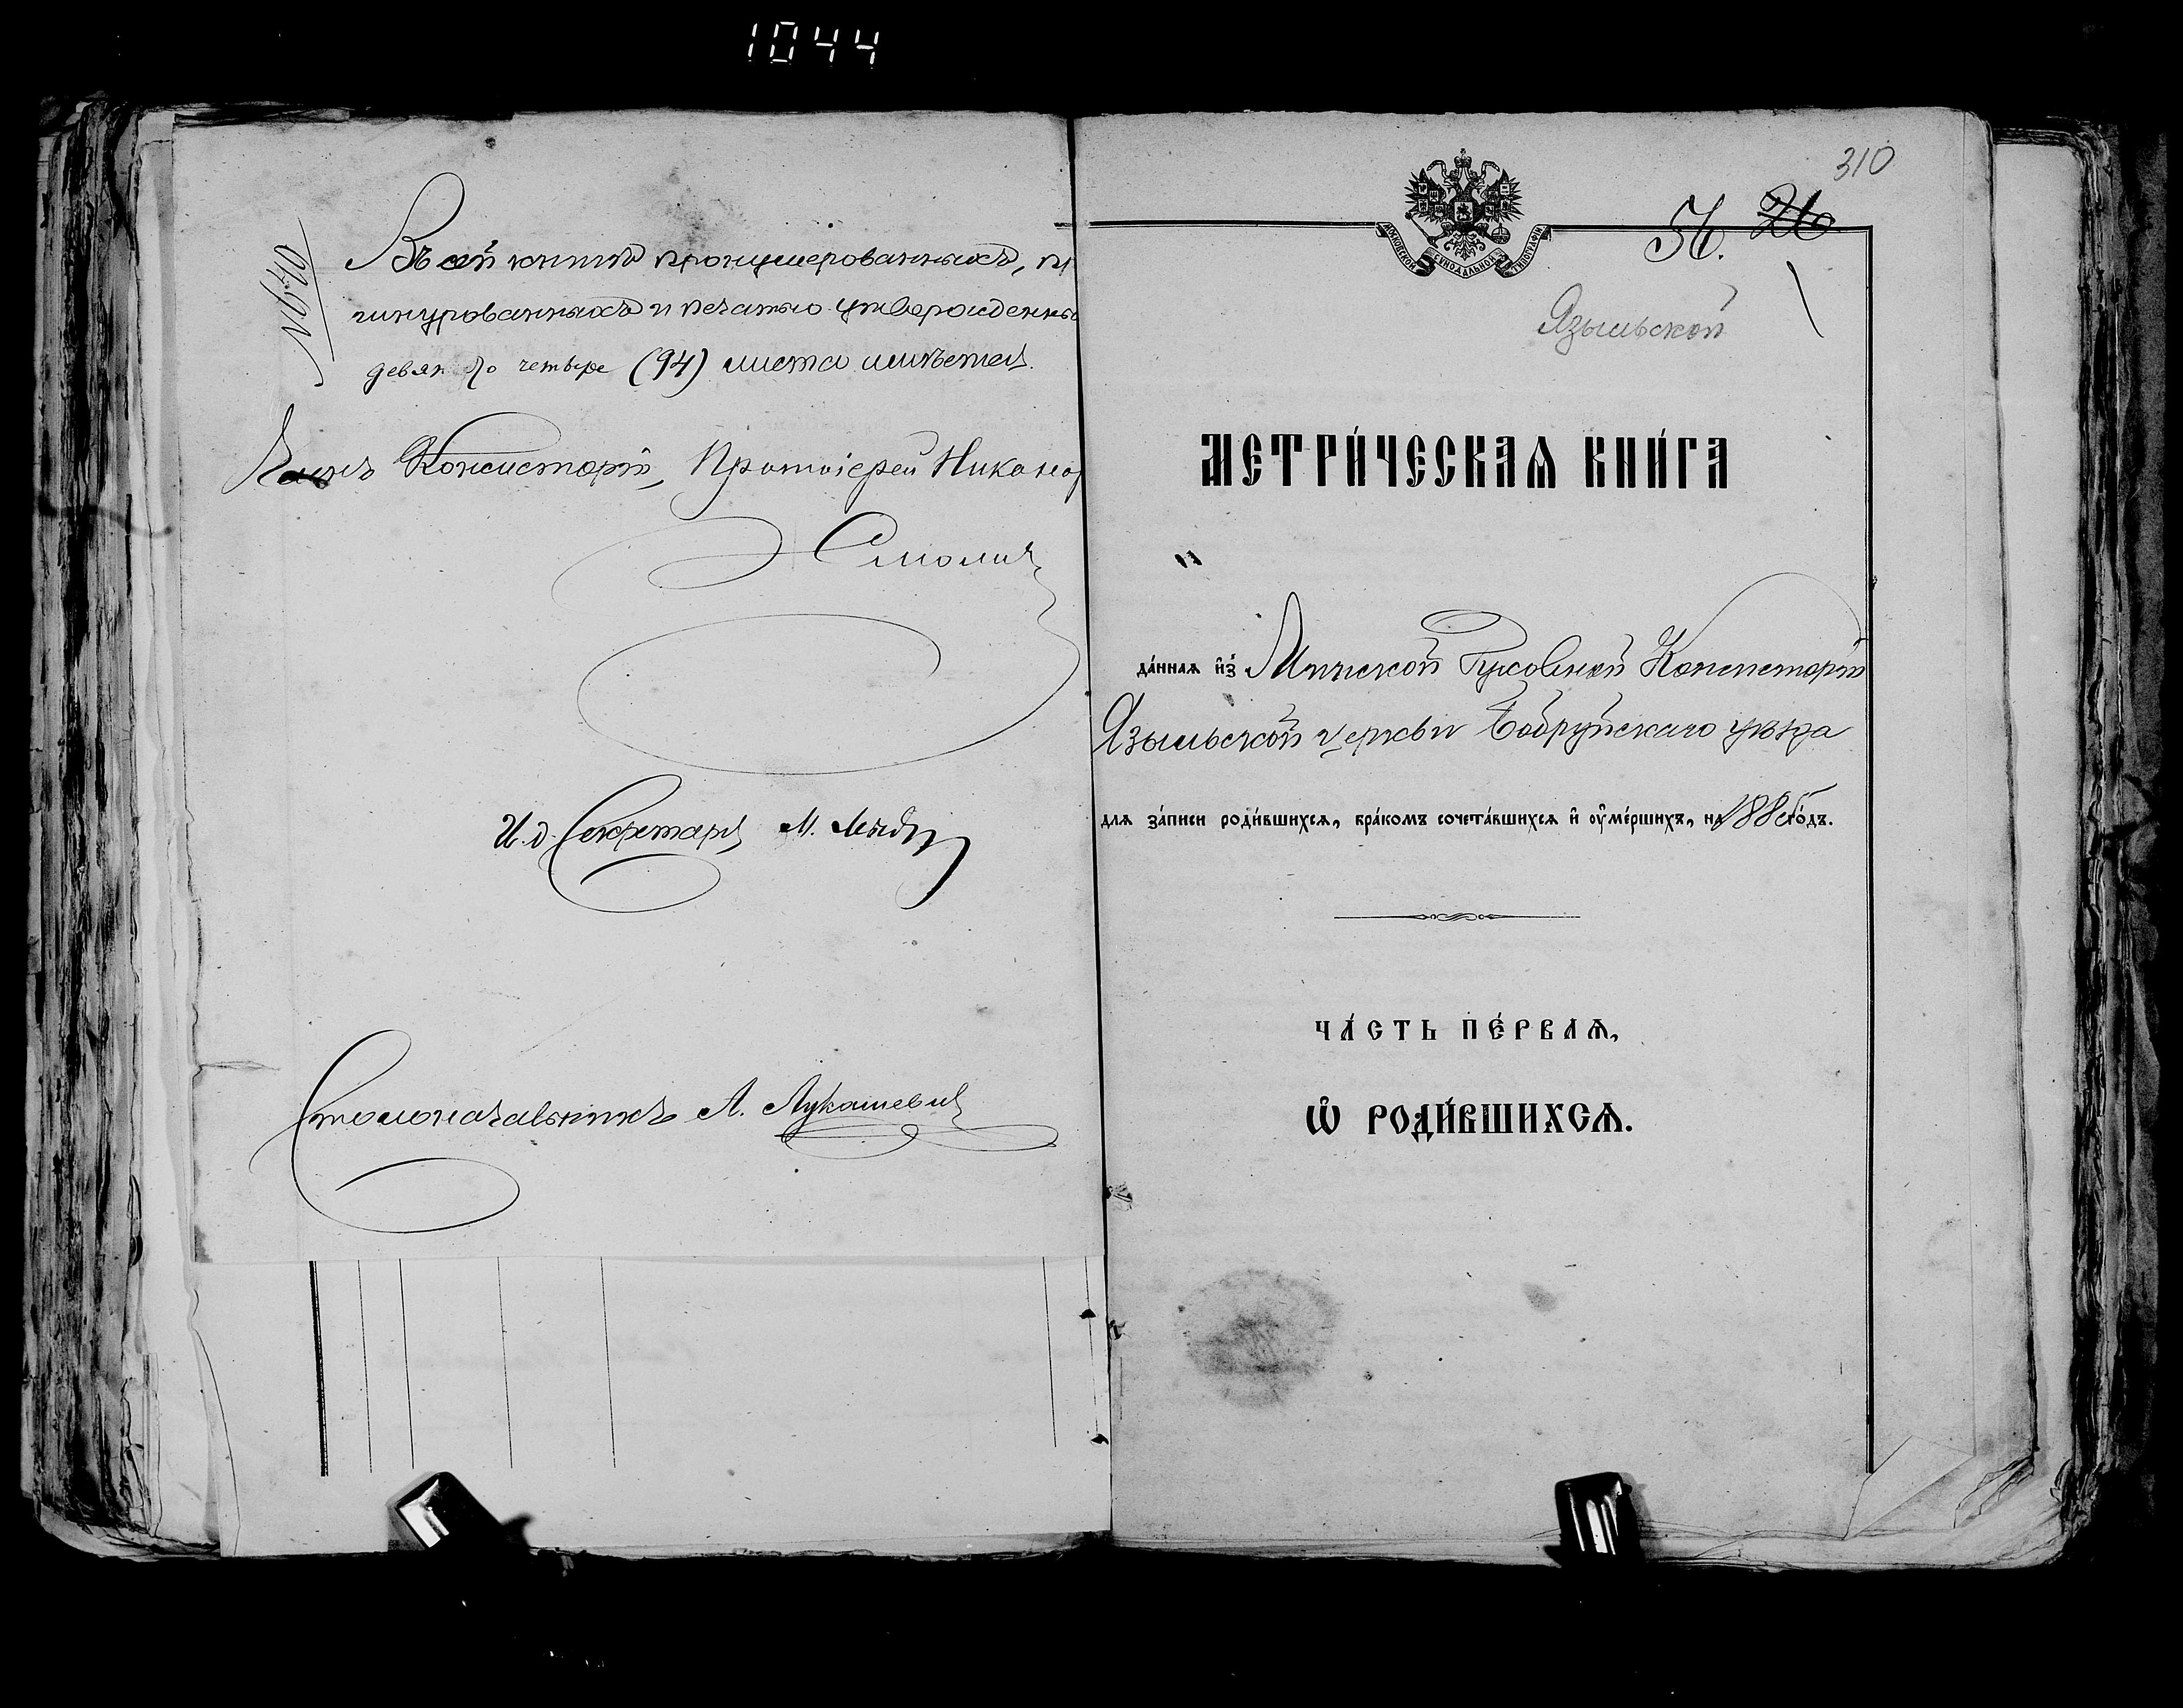 1044
№640
Въ сей книгѣ пронумерованныхъ, п
шнурованныхъ и печатью утвержденны
девяносто четыре (94) листа имѣется.
Членъ Консисторіи, Протоіерей Никанор
Смоличъ
И. д. Секретаря М.
Столоначальникъ А. Лукашевичъ
310
26
Языльской
МОСКОВСКОЙ СѴНОДАЛЬНОЙ ТИПОГРАФІИ
МЕТРИ́ЧЕСКАѦ КНИ́ГА
да́нная и҆з̾ Минской Духовной Консисторіи
Языльской церкви Бобруйскаго уѣзда
для за́писи роди́вшихся, бра́комъ сочета́вшихся и҆ ᲂу҆ме́ршихъ, на 1886 го́дъ.
ЧА́СТЬ ПЕ́РВАѦ,
Ѽ РОДИ́ВШИХСѦ.